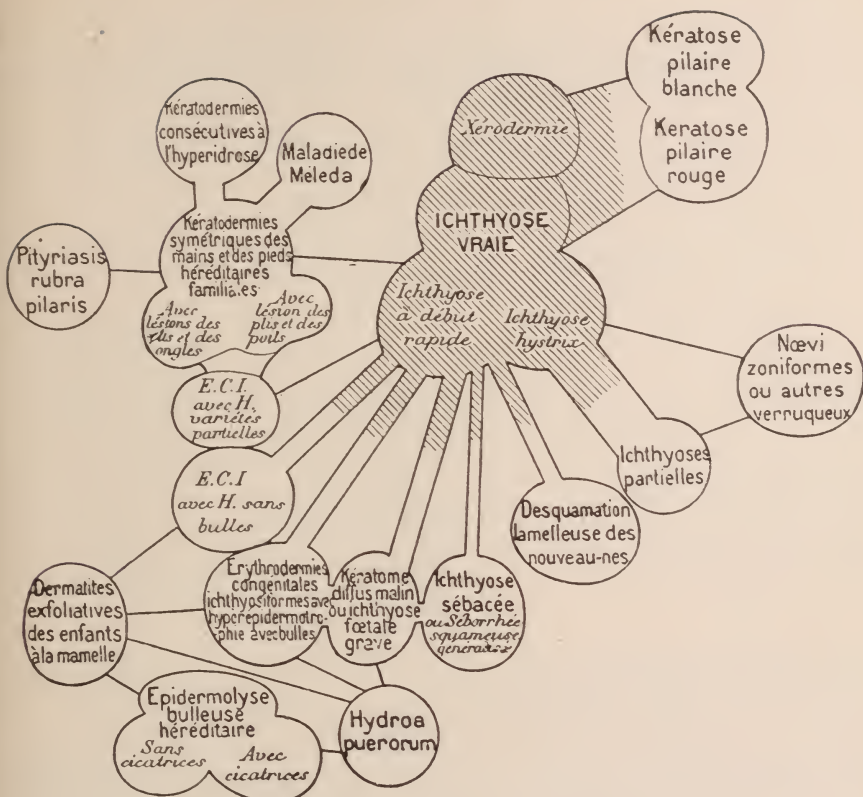 Kératose
pilaire
blanche
Keratose
pilaire
rouge
Xérodermie
ICHTHYOSE
VRAIE
Ichthyose
à début
rapide
Ichthyose
hystrix
Kératodermies
consécutives à
l'hyperidrose
Maladie de
Méleda
Kératodermies
symétriques des
mains et des pieds
héréditaires
familiales
Avec
lésions des
plis et des
ongles
Avec
lésion des
plis et des
poils
Pityriasis
rubra
pilaris
E.C.I.
avec H.
variétés
partielles
Nœvi
zoniformes
ou autres
verruqueux
Ichthyoses
partielles
E.C.I
avec H. sans
bulles
Desquamation
lamelleuse des
nouveau-nes
Dermatites
exfoliatives
des enfants
à la mamelle
Erythrodermies
congénitales
ichthyosiformes avec
hyperépidermotro-
phie avec bulles
Kératome
diffus malin
ou ichthyose
fœtale
grave
Ichthyose
sébacée
ou Séborrhée
squameuse
Epidermolyse
bulleuse
héréditaire
Sans
cicatrices
Avec
cicatrices
Hydroa
puerorum